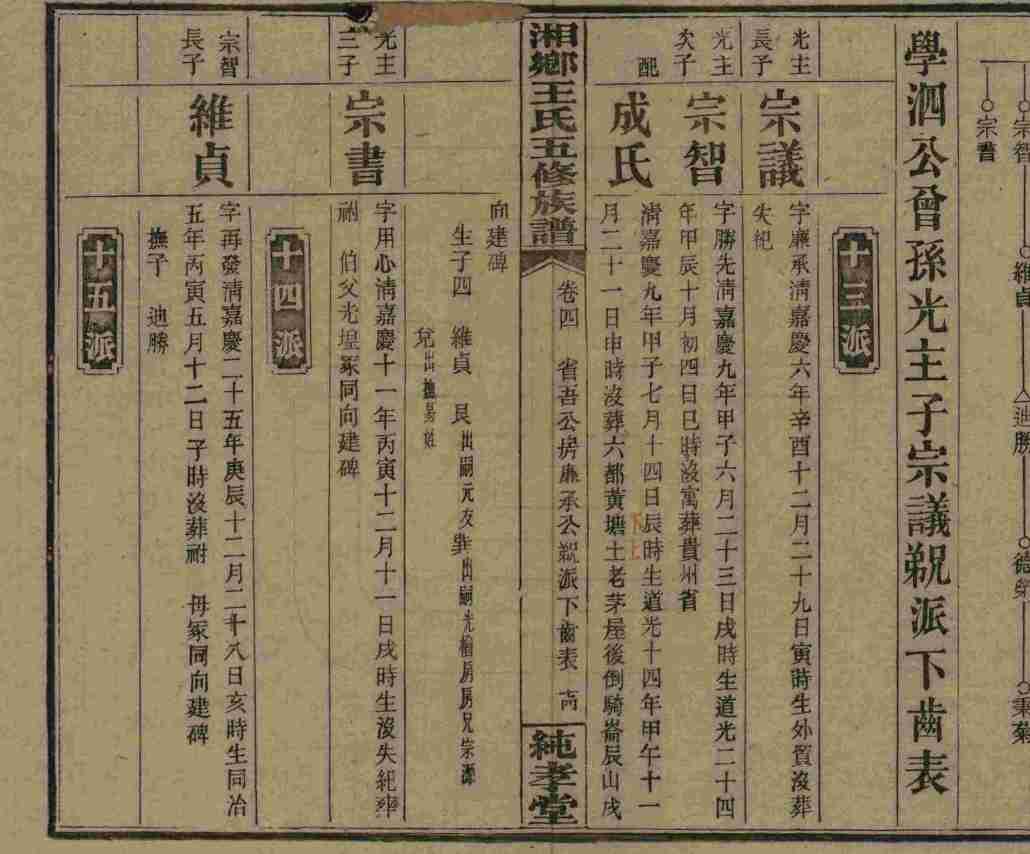 宗智
維貞
迪勝
宗書
學泗公曾孫光主子宗議宗智宗書派下齒表
十三派
光主
長子
宗議
字廉承清嘉慶六年辛酉十二月二十九日寅時生外貿沒葬
失紀
光主
次子
宗智
字勝先清嘉慶九年甲子六月二十三日戌時生道光二十四
年甲辰十月初四日巳時沒寓葬貴州省
配
成氏
清嘉慶九年甲子七月十四日辰時生道光十四年甲午十一
月二十一日申時沒葬六都黃塘土老茅屋後倒騎崙辰山戌
湘鄉王氏五修族譜
卷四 省吾公房廉承公派下齒表
純孝堂
向建碑
生子四 維貞 艮出嗣元友 巽出嗣光 房房兄宗源
兌出撫易姓
光主
三子
宗書
字用心清嘉慶十一年丙寅十二月十一日戌時生沒失紀葬
祔 伯父光 冢同向建碑
十四派
宗智
長子
維貞
字再發清嘉慶二十五年庚辰十二月二十八日亥時生同治
五年丙寅五月十二日子時沒葬祔 母冢同向建碑
撫子 迪勝
十五派